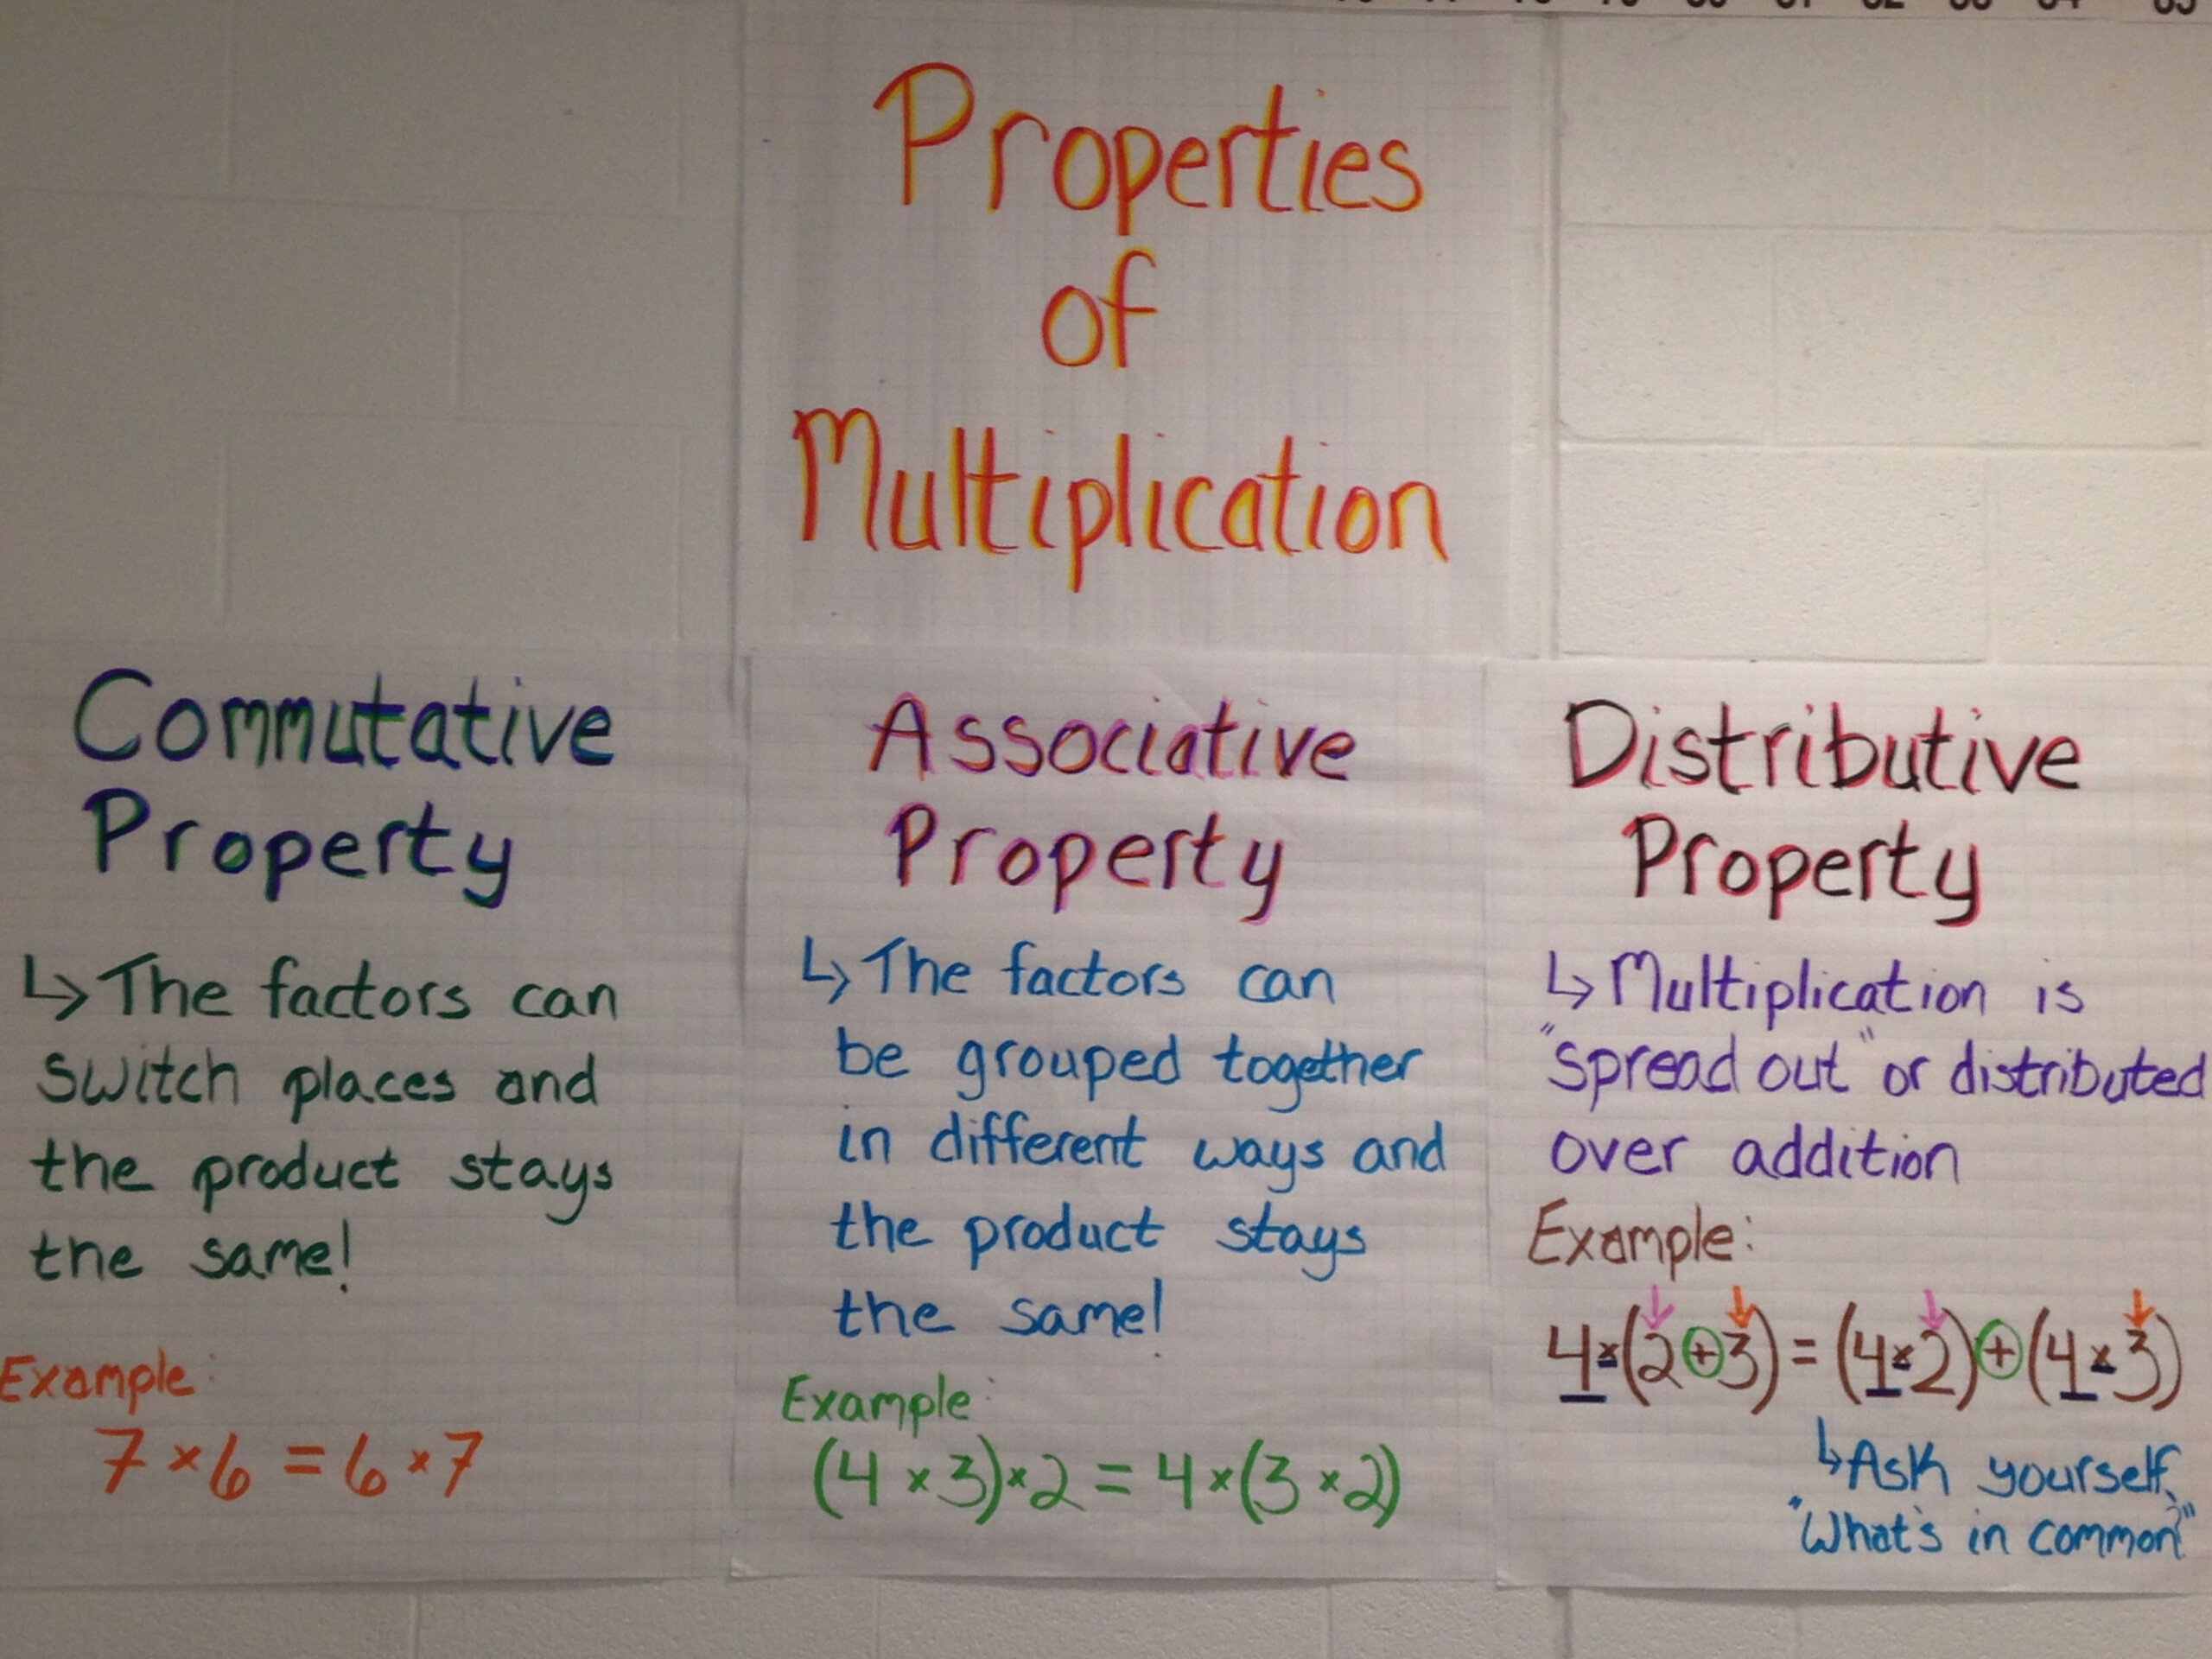 Properties
of
Multiplication
Commutative
Property
↳ The factors can
switch places and
the product stays
the same!
Example:
7 × 6 = 6 × 7
Associative
Property
↳ The factors can
be grouped together
in different ways and
the product stays
the same!
Example:
(4 × 3) × 2 = 4 × (3 × 2)
Distributive
Property
↳ Multiplication is
"spread out" or distributed
over addition
Example:
4 × (2 + 3) = (4 × 2) + (4 × 3)
↳ Ask yourself,
"What's in common?"